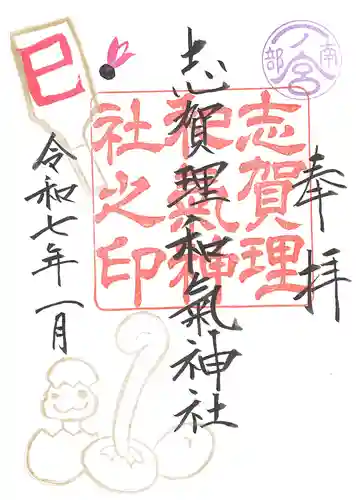 奉拝
志賀理和氣神社
志賀理
和氣神
社之印
令和七年一月
巳
南部一ノ宮